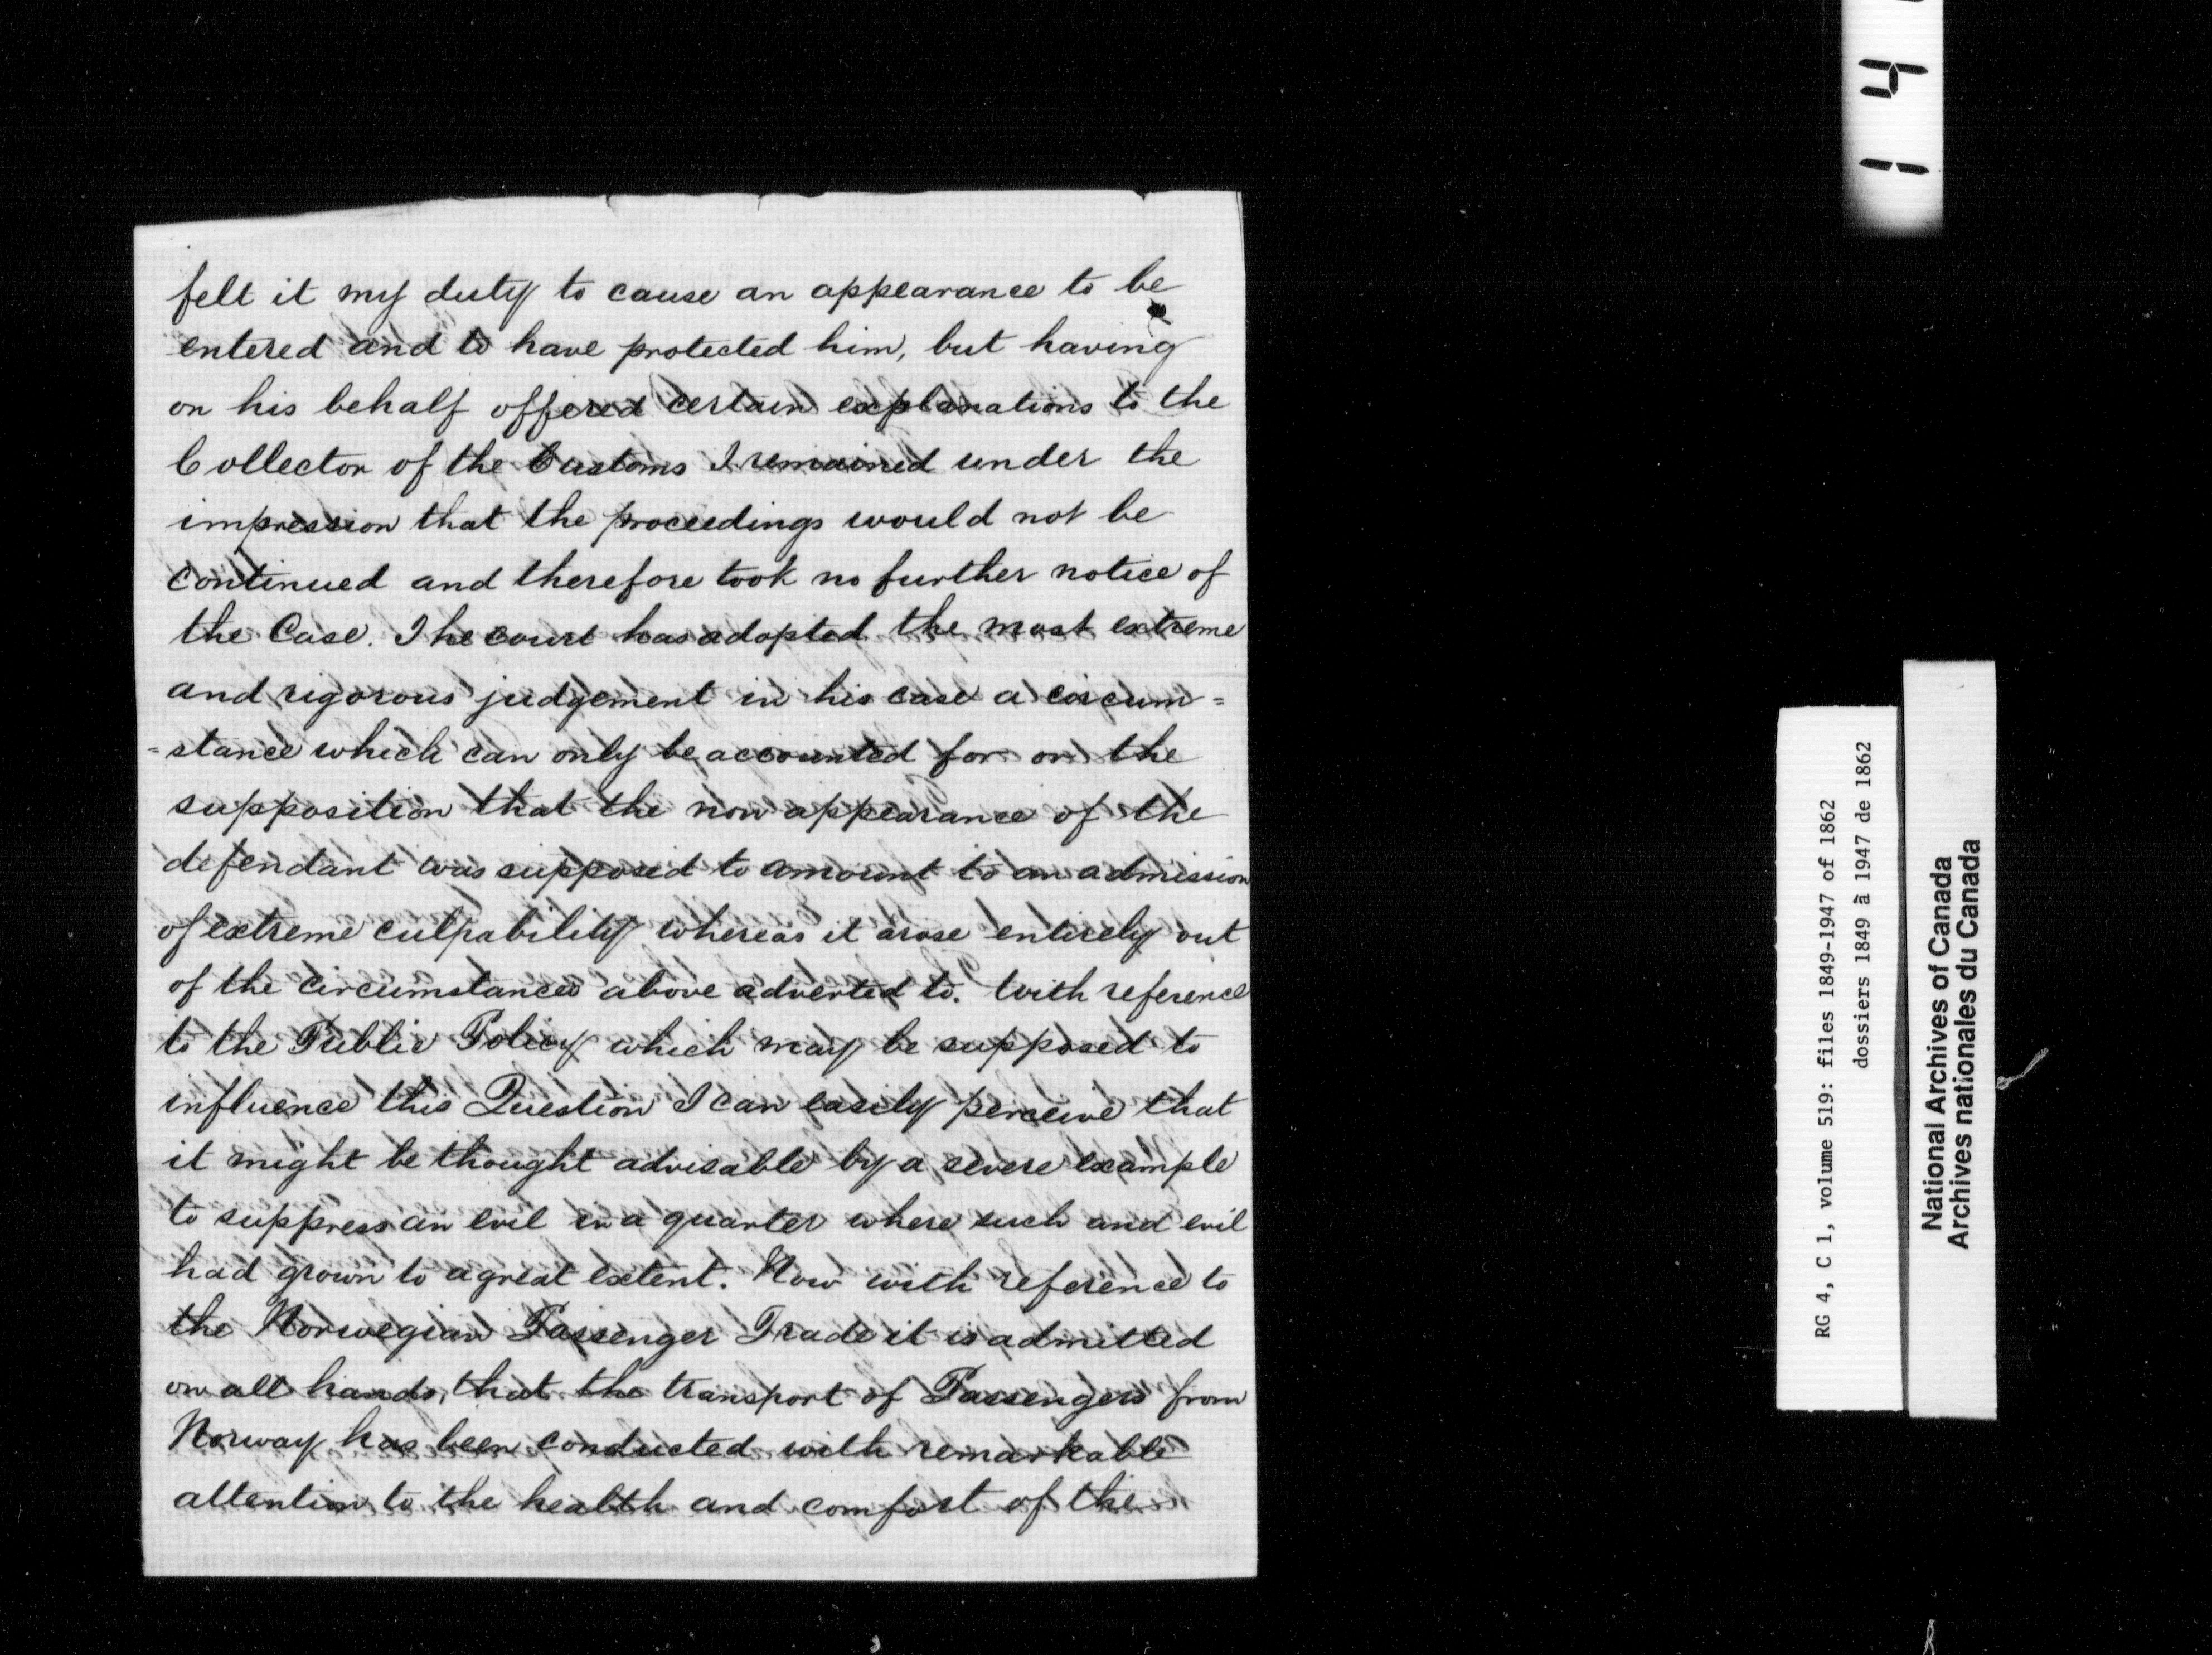 felt it my duty to cause an appearance to be
entered and to have protected him, but having
on his behalf offered certain explanations to the
Collector of the Customs I remained under the
impression that the proceedings would not be
continued and therefore took no further notice of
the Case. The court has adopted the most extreme
and rigorous judgement in his case a circum=
=stance which can only be accounted for on the
supposition that the non appearance of the
defendant was supposed to amount to an admission
of extreme culpability whereas it arose entirely out
of the circumstances above adverted to. With reference
to the Public Policy which may be supposed to
influence this Question I can easily perceive that
it might be thought advisable by a severe example
to suppress an evil in a quarter where such and evil
had grown to a great extent. Now with reference to
the Norwegian Passenger Trade it is admitted
on all hands, that the transport of Passengers from
Norway has been conducted with remarkable
attention to the health and comfort of the
1 4
RG 4, C 1, volume 519: files 1849-1947 of 1862
dossiers 1849 à 1947 de 1862
National Archives of Canada
Archives nationales du Canada